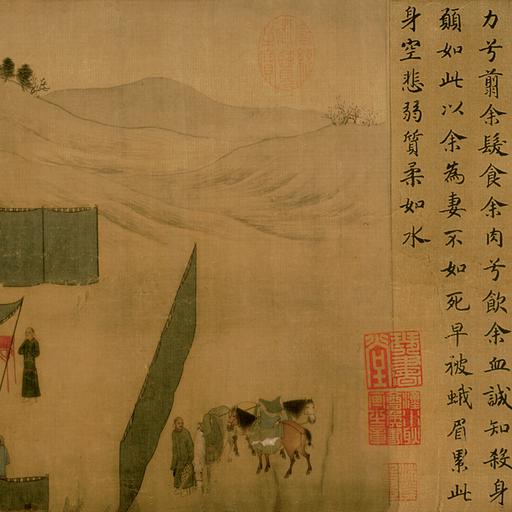 力兮翦余髮食余肉兮飲余血誠知殺身
願如此以余為妻不如死早被蛾眉累此
身空悲弱質柔如水